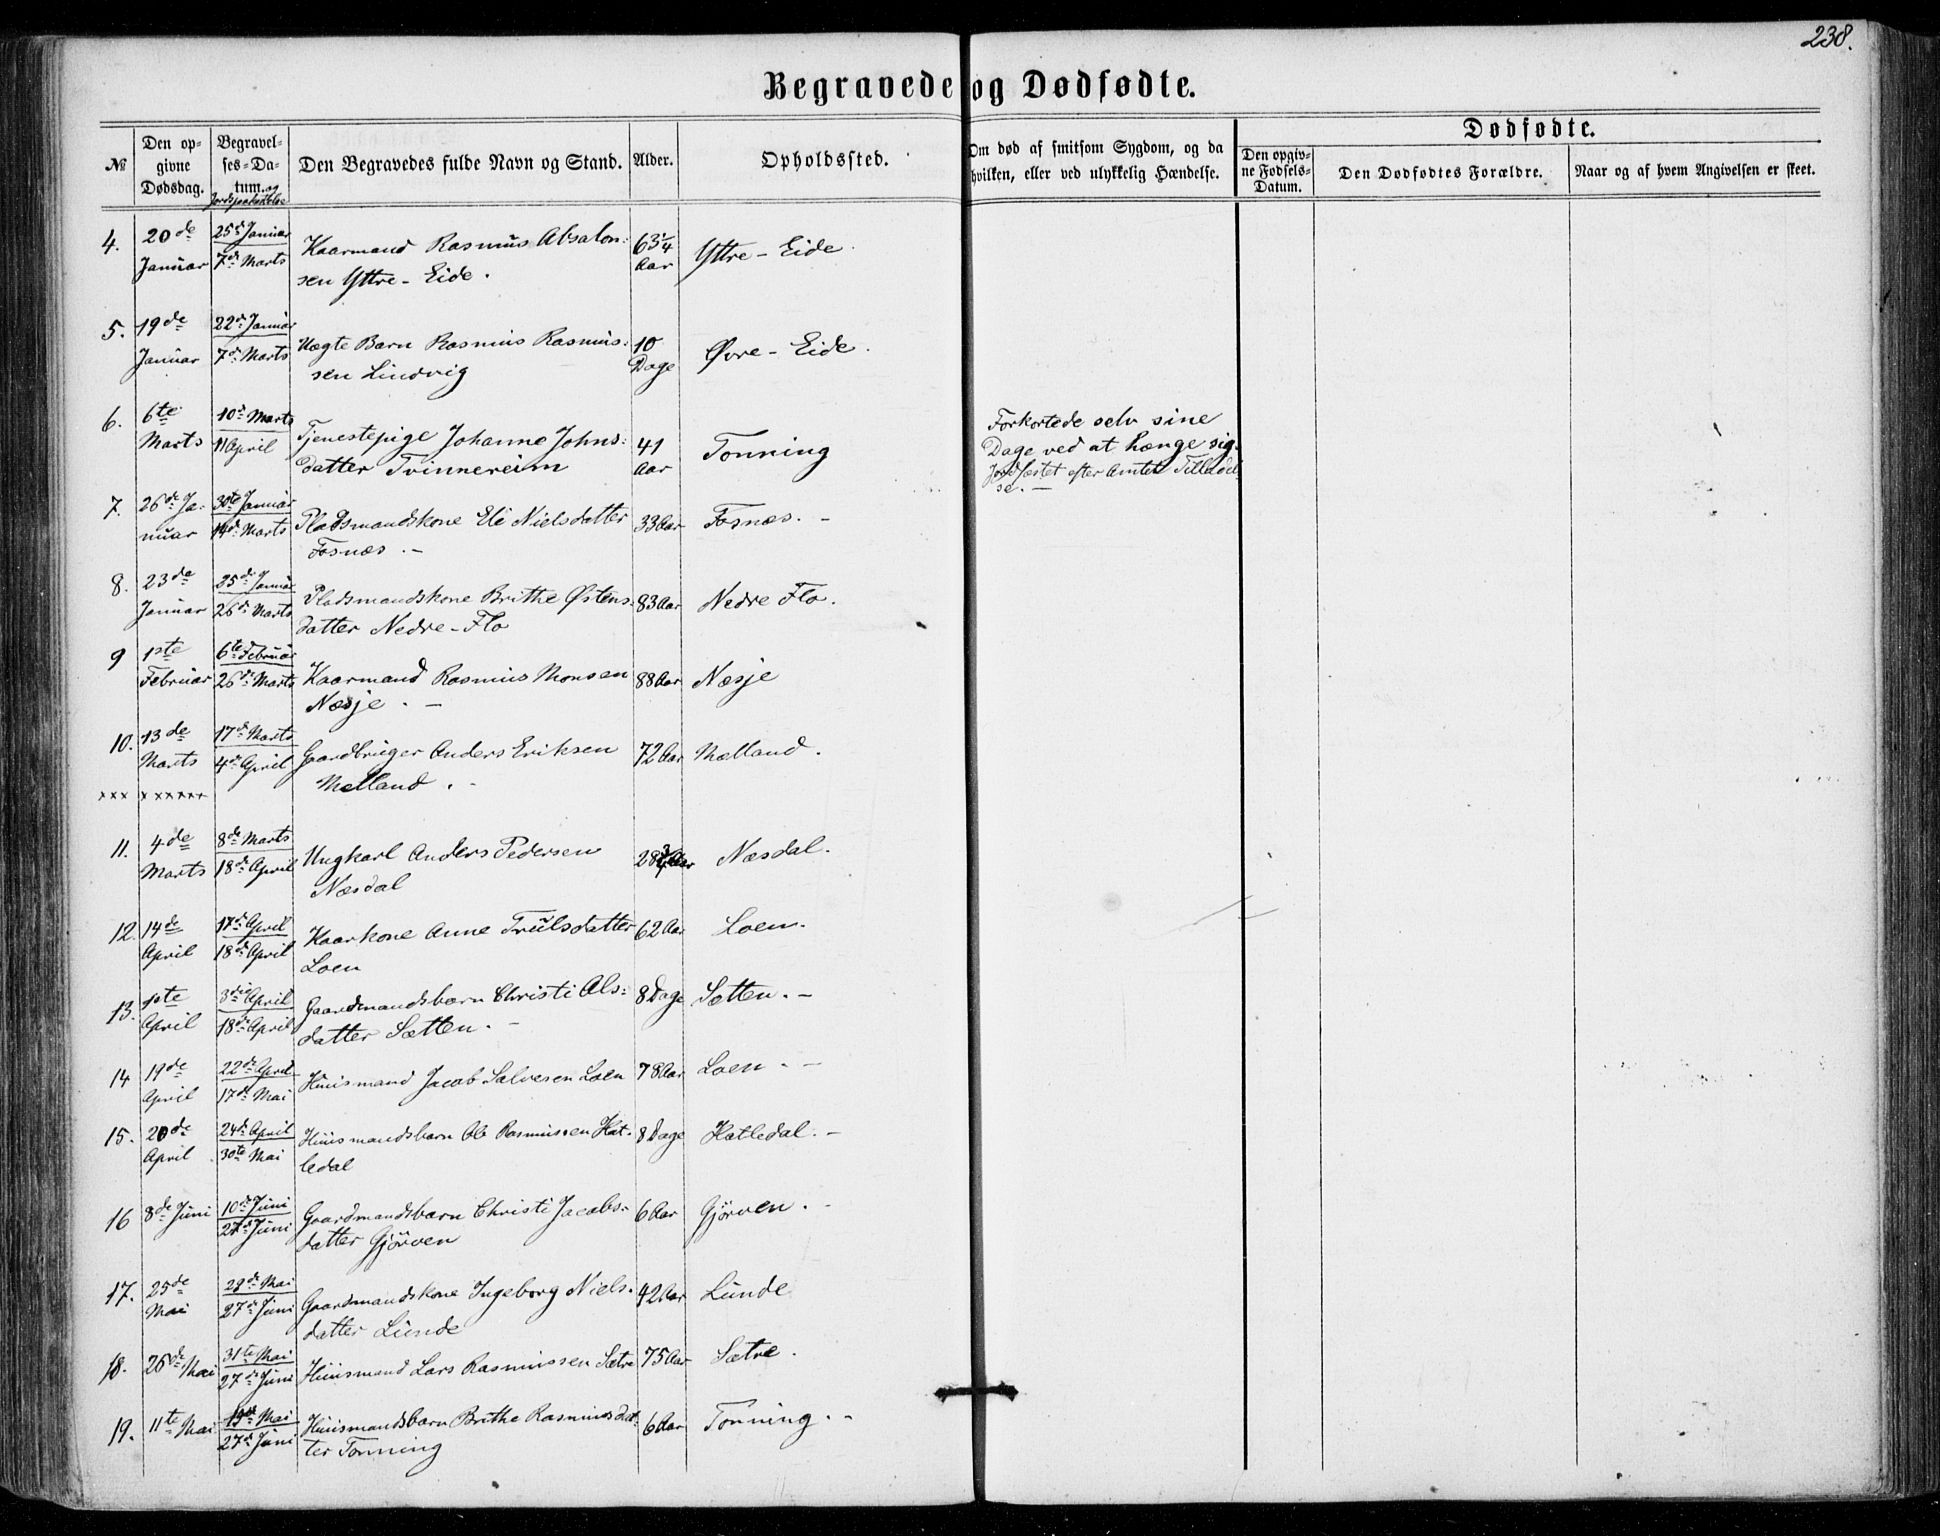 238.
Begravede og Dødfødte.
№ | Den opgivne Dødsdag. | Begravelses-Datum. og Jordspaakastelse | Den Begravedes fulde Navn og Stand. | Alder. | Opholdssted. | Om død af smitsom Sygdom, og da hvilken, eller ved ulykkelig Hændelse. | Dødfødte.
Den opgivne Fødsels-Datum. | Den Dødfødtes Forældre. | Naar og af hvem Angivelsen er skeet.
4. 20de 25de Januar Kaarmand Rasmus Absalon: 63¼ Yttre-Eide.
Januar 7de Marts sen Yttre-Eide. Aar
5. 19de 22de Januar Uægte Barn Rasmus Rasmus: 10 Øvre-Eide.
Januar 7de Marts sen Lindvig Dage
6. 6te 10de Marts Tjenestepige Johanne Johns: 41 Tonning Forkortede selv sine
Marts 11 April datter Tvinnereim Aar Dage ved at hænge sig.
Jordfæstet efter Amtets Tilladel
se. –
7. 26de Ja: 30te Januar Pladsmandskone Eli Nielsdatter 33 Aar Fosnæs. –
nuar 14de Marts Fosnæs. –
8. 23de 25de Januar Pladsmandskone Brithe Østens: 83 Aar Nedre Flo.
Januar 26de Marts datter Nedre-Flo
9 1ste 6te Februar Kaarmand Rasmus Monsen 88 Aar Næsje
Februar 26de Marts Næsje. –
10. 13de 17de Marts Gaardbruger Anders Eriksen 72 Aar Mælland.
Marts 4de April Mælland. –
xxx xxxxxx
11. 4de 8de Marts Ungkarl Anders Pedersen 28¾ Aar Næsdal.
Marts 18de April Næsdal
12. 14de 17de April Kaarkone Anne Trulsdatter 62 Aar Loen.
April 18de April Loen
13. 1ste 3die April Gaardmandsbarn Christi Als: 8 Dage Sætten. –
April 18de April datter Sætten. –
14 19de 22de April Huusmand Jacob Salvesen Loen 78 Aar Loen. –
April 17de Mai
15. 20de 24de April Huusmandsbarn Ole Rasmussen Hat: 8 Dage Hatledal. –
April 30te Mai ledal
16 8de Juni 10de Juni Gaardmandsbarn Christi Jacobs- 6 Aar Gjørven. –
27de Juni datter Gjørven
17. 25de 29de Mai Gaardmandskone Ingeborg Niels. 42 Aar Lunde
Mai 27de Juni datter Lunde
18. 26de Mai 31te Mai Huusmand Lars Rasmussen Sætre 75 Aar Sætre.
27de Juni
19. 11te Mai 19de Mai Huusmandsbarn Brithe Rasmusdat: 6 Aar Tonning. –
27de Juni ter Tonning